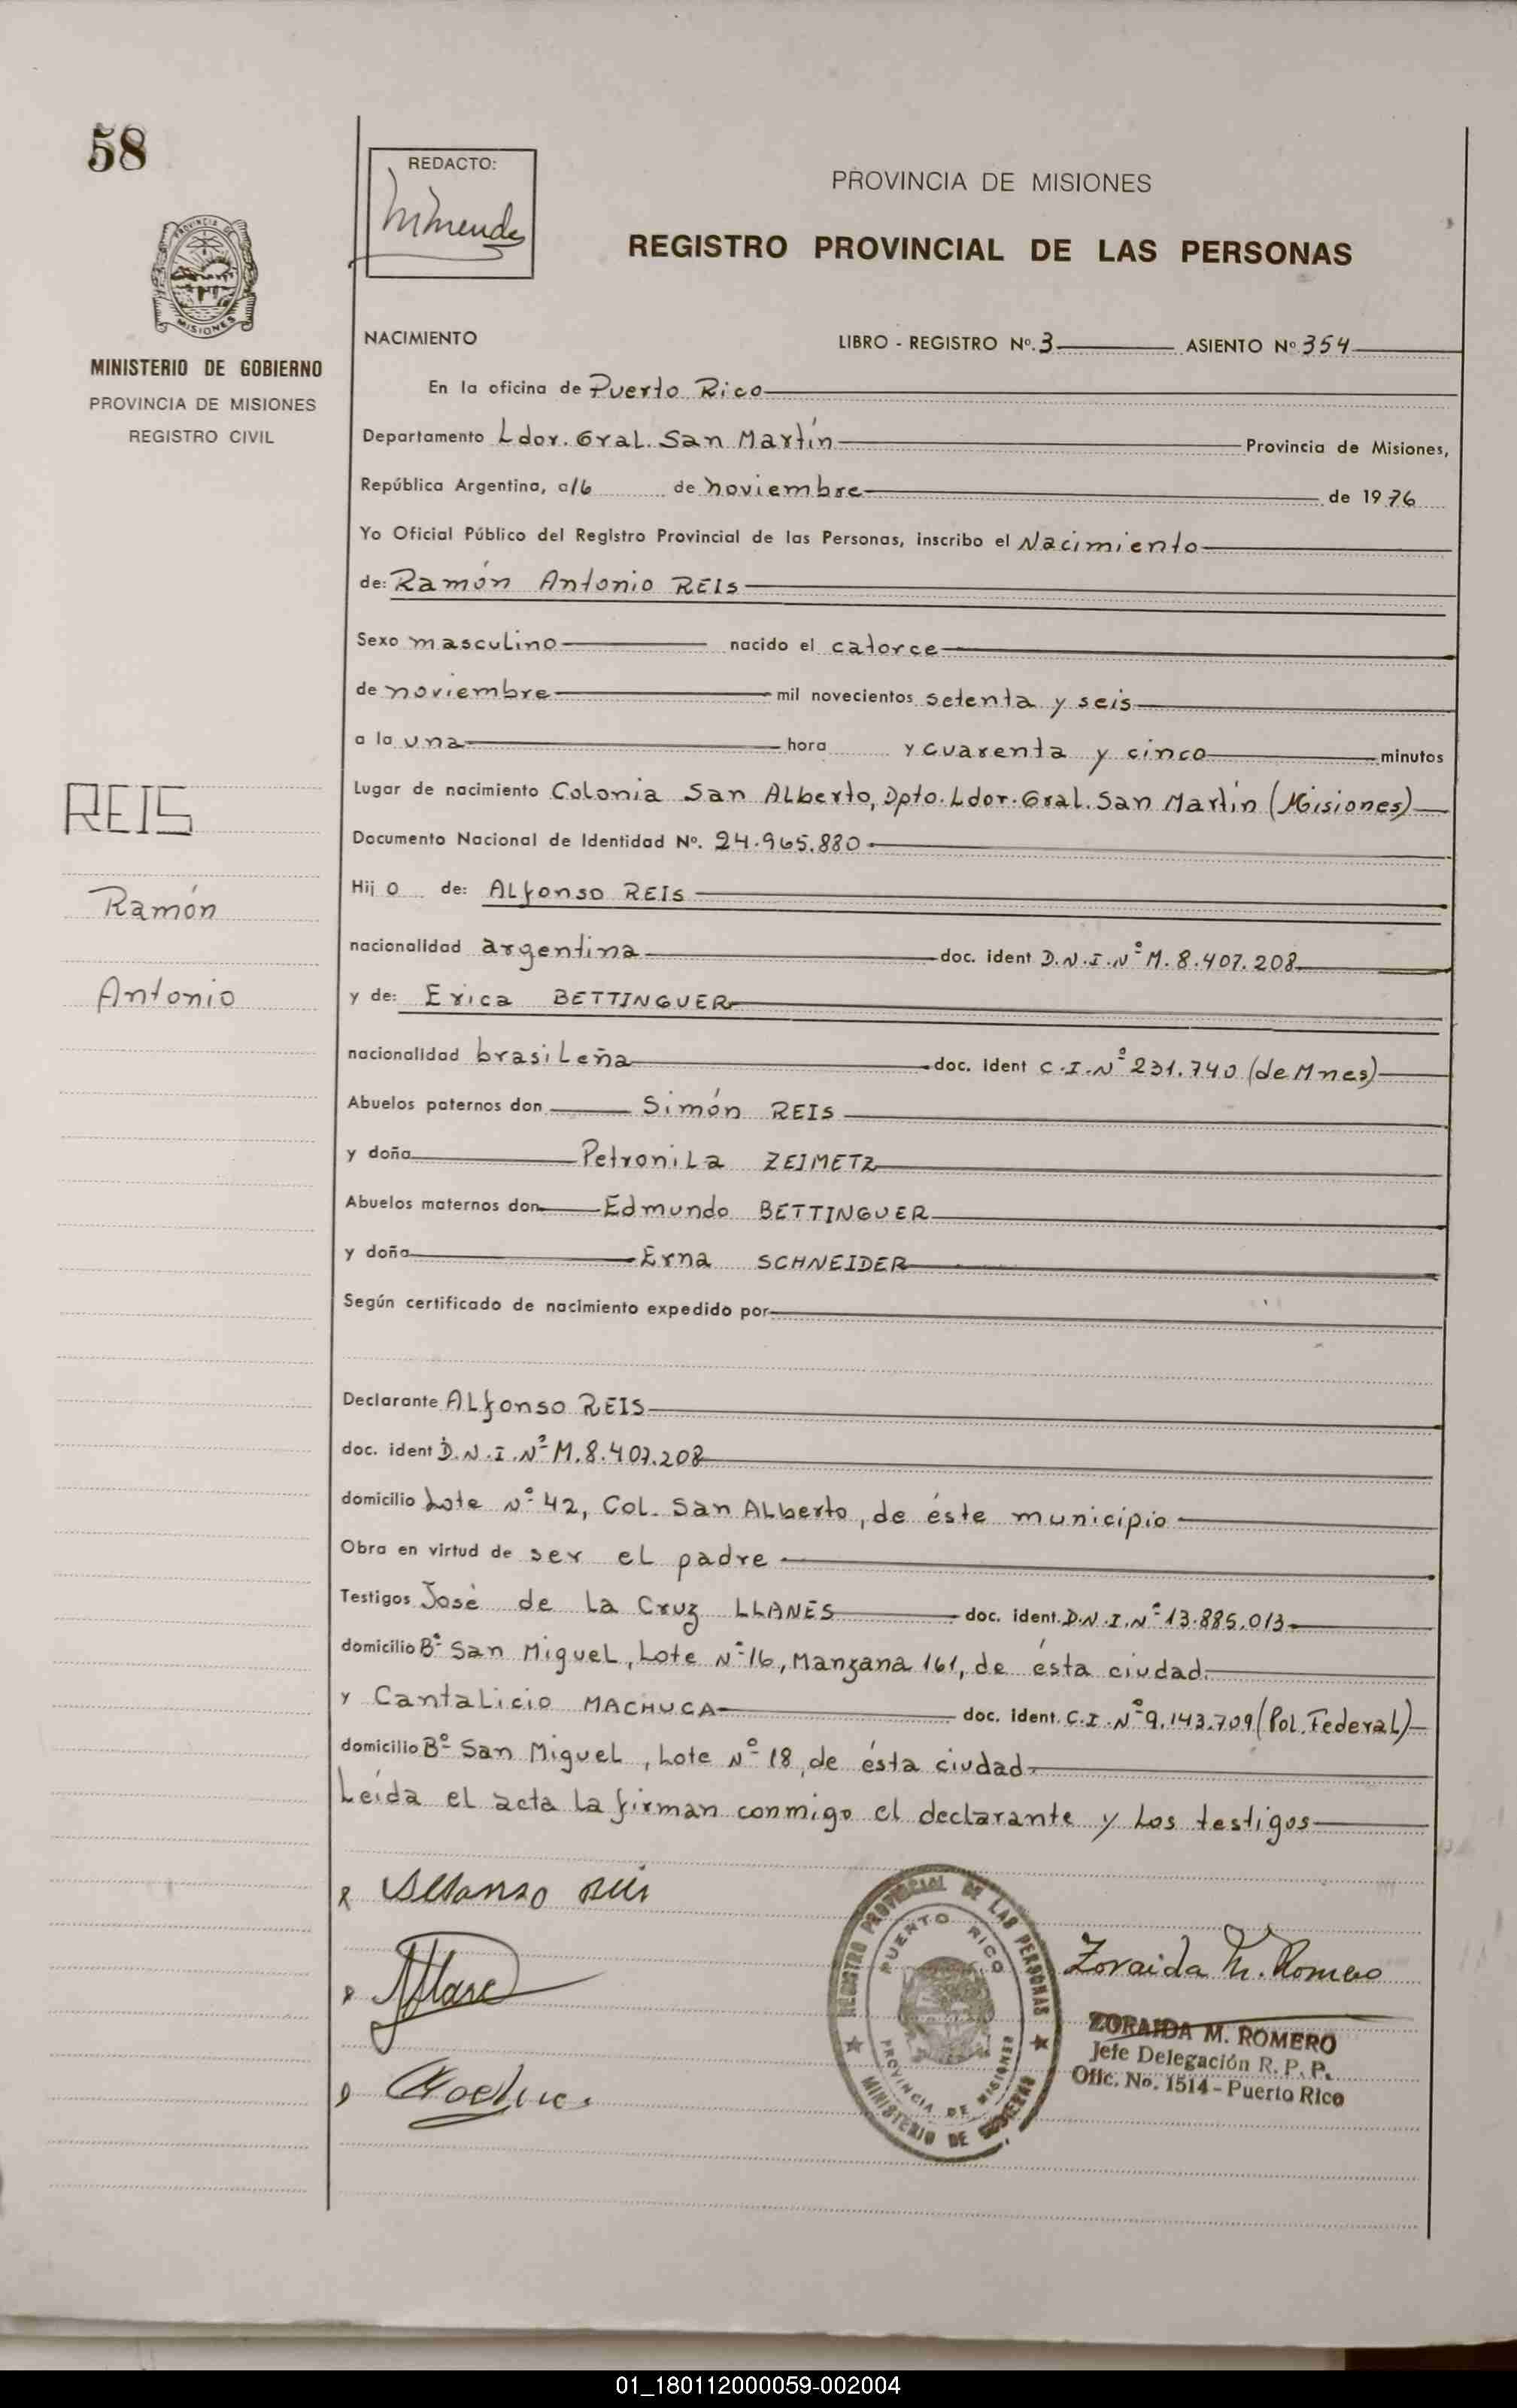 58
REDACTO:
PROVINCIA DE MISIONES
REGISTRO PROVINCIAL DE LAS PERSONAS
PROVINCIA DE
MISIONES
MINISTERIO DE GOBIERNO
PROVINCIA DE MISIONES
REGISTRO CIVIL
NACIMIENTO LIBRO - REGISTRO Nº. 3 ASIENTO Nº 354
En la oficina de Puerto Rico
Departamento Ldor. Gral. San Martín Provincia de Misiones,
República Argentina, a 16 de noviembre de 1976
Yo Oficial Público del Registro Provincial de las Personas, inscribo el Nacimiento
de: Ramón Antonio REIS
Sexo masculino nacido el catorce
de noviembre mil novecientos setenta y seis
a la una hora y cuarenta y cinco minutos
Lugar de nacimiento Colonia San Alberto, Dpto. Ldor. Gral. San Martín (Misiones)
Documento Nacional de Identidad Nº. 24.965.880
Hijo de: Alfonso REIS
nacionalidad argentina doc. ident D.N.I.Nº M. 8.407.208
y de: Erica BETTINGUER
nacionalidad brasileña doc. ident C.I.Nº 231.740 (de Mnes)
Abuelos paternos don Simón REIS
y doña Petronila ZEIMETZ
Abuelos maternos don Edmundo BETTINGUER
y doña Erna SCHNEIDER
Según certificado de nacimiento expedido por
Declarante Alfonso REIS
doc. ident D.N.I.Nº M.8.407.208
domicilio Lote Nº 42, Col. San Alberto, de éste municipio
Obra en virtud de ser el padre
Testigos José de la Cruz LLANES doc. ident. D.N.I.Nº 13.885.013
domicilio Bº San Miguel, Lote Nº 16, Manzana 161, de ésta ciudad.
y Cantalicio MACHUCA doc. ident. C.I.Nº 9.143.709 (Pol. Federal)
domicilio Bº San Miguel, Lote Nº 18, de ésta ciudad.
Leída el acta la firman conmigo el declarante y los testigos
REIS
Ramón
Antonio
Alfonso Reis
REGISTRO PROVINCIAL DE LAS PERSONAS
PUERTO RICO
PROVINCIA DE MISIONES
MINISTERIO DE GOBIERNO
Zoraida M. Romero
ZORAIDA M. ROMERO
Jefe Delegación R. P. P.
Ofic. No. 1514 - Puerto Rico
01_180112000059-002004